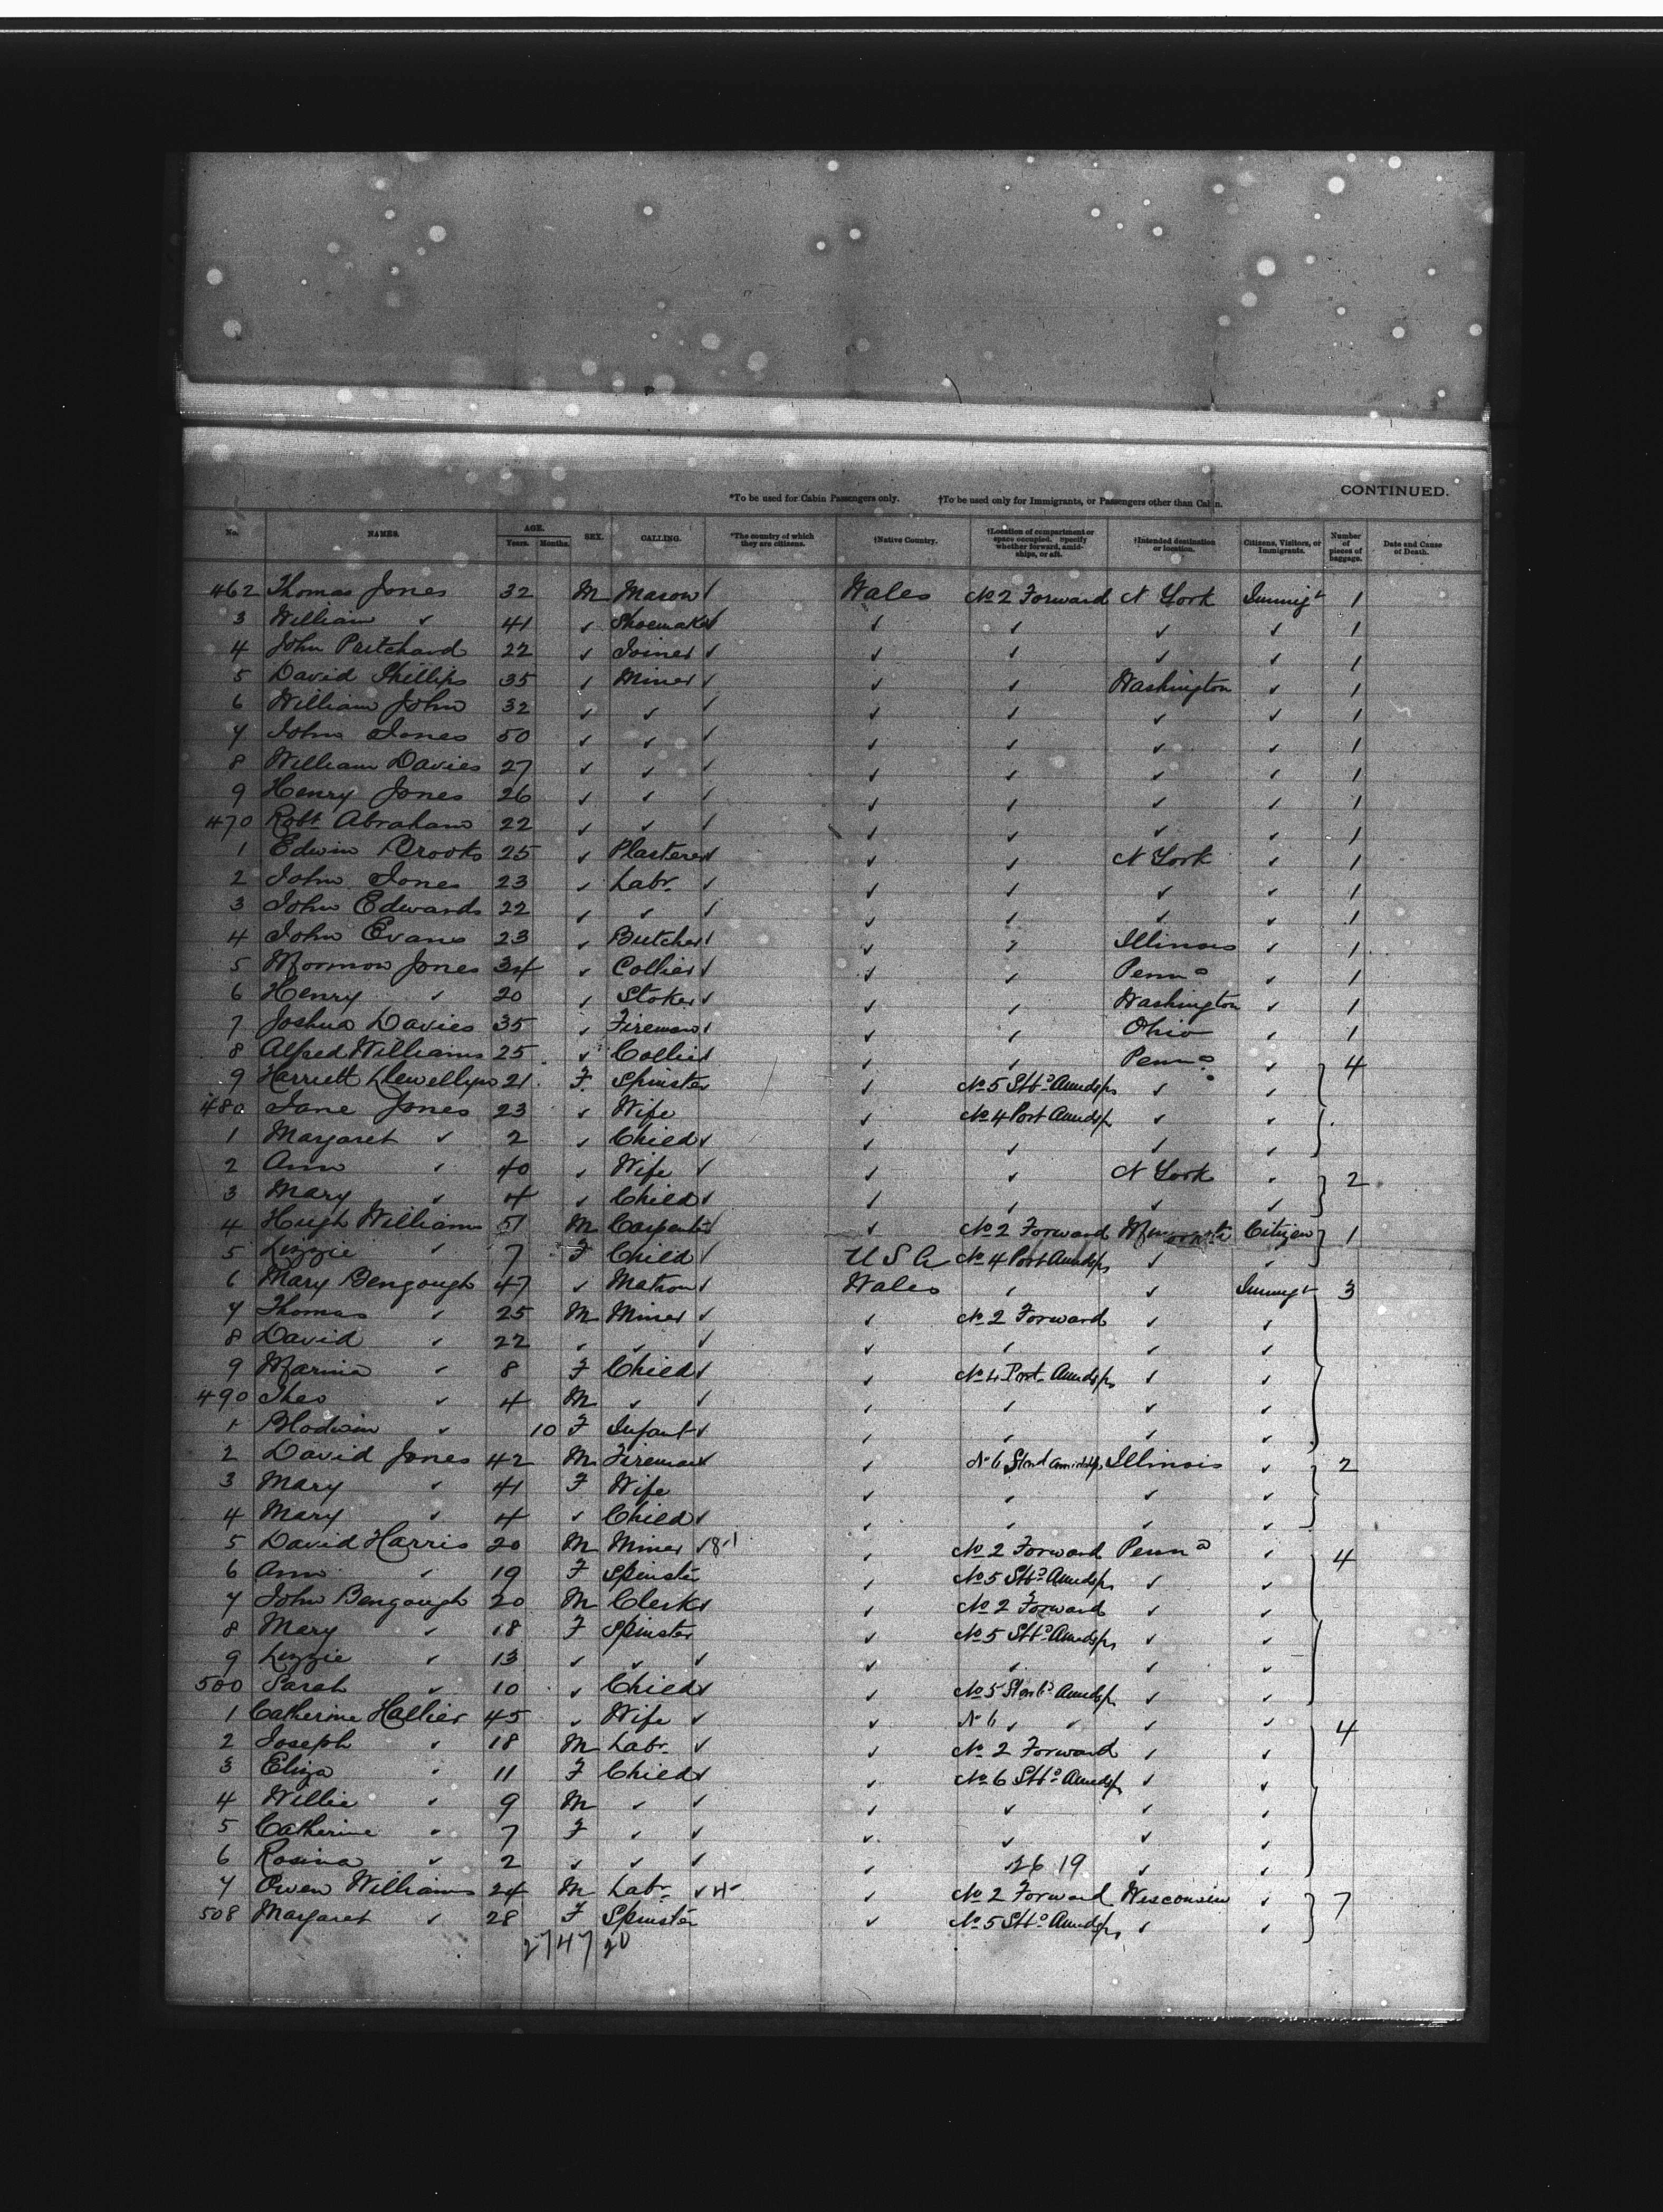 CONTINUED.
*To be used for Cabin Passengers only. †To be used only for Immigrants, or Passengers other than Cabin.
No. NAMES. AGE. Years. Months. SEX. CALLING. *The country of which they are citizens. †Native Country. †Location of compartment or space occupied. Specify whether forward, amidships, or aft. †Intended destination or location. Citizens, Visitors, or Immigrants. Number of pieces of baggage. Date and Cause of Death.
462 Thomas Jones 32 M Mason ✓ Wales No 2 Forward N York Immigt 1
3 William ✓ 41 ✓ Shoemaker ✓ ✓ ✓ ✓ ✓ 1
4 John Pritchard 22 ✓ Joiner ✓ ✓ ✓ ✓ ✓ 1
5 David Phillips 35 ✓ Miner ✓ ✓ ✓ Washington ✓ 1
6 William John 32 ✓ ✓ ✓ ✓ ✓ ✓ ✓ 1
7 John Jones 50 ✓ ✓ ✓ ✓ ✓ ✓ ✓ 1
8 William Davies 27 ✓ ✓ ✓ ✓ ✓ ✓ ✓ 1
9 Henry Jones 26 ✓ ✓ ✓ ✓ ✓ ✓ ✓ 1
470 Robt Abraham 22 ✓ ✓ ✓ ✓ ✓ ✓ ✓ 1
1 Edwin Brooks 25 ✓ Plasterer ✓ ✓ ✓ N York ✓ 1
2 John Jones 23 ✓ Labr. ✓ ✓ ✓ ✓ ✓ 1
3 John Edwards 22 ✓ ✓ ✓ ✓ ✓ ✓ ✓ 1
4 John Evans 23 ✓ Butcher ✓ ✓ ✓ Illinois ✓ 1
5 Mormon Jones 34 ✓ Collier ✓ ✓ ✓ Penna ✓ 1
6 Henry ✓ 20 ✓ Stoker ✓ ✓ ✓ Washington ✓ 1
7 Joshua Davies 35 ✓ Fireman ✓ ✓ ✓ Ohio ✓ 1
8 Alfred Williams 25 ✓ Collier ✓ ✓ ✓ Penna ✓ 4
9 Harriett Llewellyn 21 F Spinster ✓ No 5 Stbd Amidsps ✓ ✓
480 Jane Jones 23 ✓ Wife ✓ No 4 Port Amidsps ✓ ✓
1 Margaret ✓ 2 ✓ Child ✓ ✓ ✓ ✓ ✓
2 Ann ✓ 40 ✓ Wife ✓ ✓ ✓ N York ✓ 2
3 Mary ✓ 4 ✓ Child ✓ ✓ ✓ ✓ ✓
4 Hugh Williams 51 M Carpenter ✓ ✓ No 2 Forward Citizen 1
5 Lizzie ✓ 7 F Child ✓ U S A No 4 Port Amidsps ✓ ✓
6 Mary Bengough 47 ✓ Matron ✓ Wales ✓ ✓ Immigt 3
7 Thomas ✓ 25 M Miner ✓ ✓ No 2 Forward ✓ ✓
8 David ✓ 22 ✓ ✓ ✓ ✓ ✓ ✓ ✓
9 Marina ✓ 8 F Child ✓ ✓ No 4 Port Amidsps ✓ ✓
490 Theo ✓ 4 M ✓ ✓ ✓ ✓ ✓ ✓
1 Blodwin ✓ 10 F Infant ✓ ✓ ✓ ✓ ✓
2 David Jones 42 M Fireman ✓ ✓ No 6 Starbd Amidships Illinois ✓ 2
3 Mary ✓ 41 F Wife ✓ ✓ ✓ ✓
4 Mary ✓ 4 ✓ Child ✓ ✓ ✓ ✓ ✓
5 David Harris 20 M Miner ✓ ✓ No 2 Forward Penna ✓ 4
6 Ann ✓ 19 F Spinster ✓ No 5 Stbd Amidsps ✓ ✓
7 John Bengough 20 M Clerk ✓ ✓ No 2 Forward ✓ ✓
8 Mary ✓ 18 F Spinster ✓ No 5 Stbd Amidsps ✓ ✓
9 Lizzie ✓ 13 ✓ ✓ ✓ ✓ ✓ ✓ ✓
500 Sarah ✓ 10 ✓ Child ✓ ✓ No 5 Starbd Amidsps ✓ ✓
1 Catherine Hallier 45 ✓ Wife ✓ ✓ No 6 ✓ ✓ ✓ ✓ 4
2 Joseph ✓ 18 M Labr. ✓ ✓ No 2 Forward ✓ ✓
3 Eliza ✓ 11 F Child ✓ ✓ No 6 Stbd Amidsps ✓ ✓
4 Willie ✓ 9 M ✓ ✓ ✓ ✓ ✓ ✓
5 Catherine ✓ 7 F ✓ ✓ ✓ ✓ ✓ ✓
6 Rosina ✓ 2 ✓ ✓ ✓ ✓ 26 19 ✓ ✓
7 Owen Williams 24 M Labr. ✓ ✓ No 2 Forward Wisconsin ✓ 7
508 Margaret ✓ 28 F Spinster ✓ No 5 Stbd Amidsps ✓ ✓
27 47 20